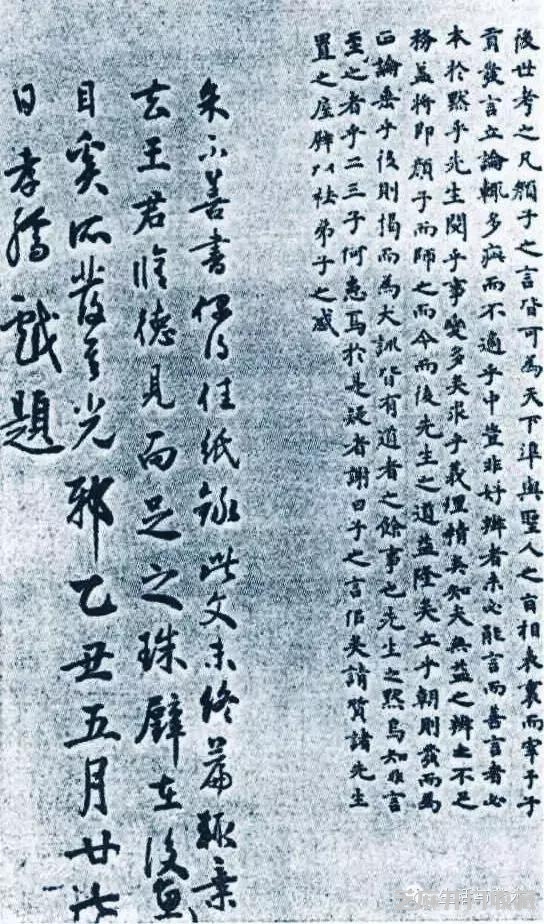 後世考之凡顏子之言皆可為天下準與聖人之言相表裏而宰予子
貢發言立論輒多疵而不適乎中豈非好辨者未必能言而善言者必
本於默乎先生閱乎事變多矣求乎義理精矣知夫無益之辨之不足
務益將即顏子而師之而今而後先生之道益隆矣立乎朝則發而為
正論垂乎後則揭而為大訓皆有道者之餘事也先生之默烏知非言
至之者乎二三子何惑焉於是疑者謝曰子之言信矣請質諸先生
置之座壁以祛弟子之惑
朱不善書得佳紙錄此文未終篇輒棄
去王君脩德見而足之珠璧在後
目矣所發之光邪乙丑五月廿
日孝孺戲題